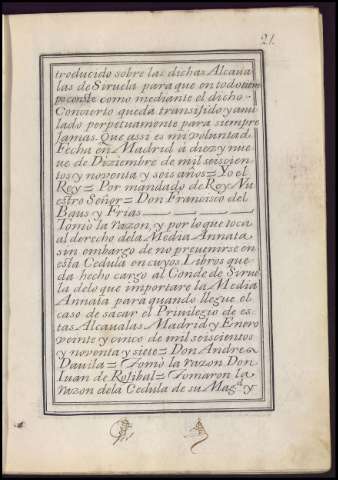 21.
troducido sobre las dichas Alcaua
las de Siruela para que en todo tiem
po conste como mediante el dicho
Convierto queda transijido y anu
lado perpetuamente para siempre
Jamas. Que assi es mi voluntad.
Fecha en Madrid a diez y nue
ue de Diziembre de mil seiscien
tos y noventa y seis años = Yo el
Rey = Por mandado de Rey Nu
estro Señor = Don Francisco del
Baus y Frias
Tomò la razon, y por lo que toca
al derecho dela Media Annata
sin embargo de no preuenirse en
esta Cedula en cuyos Libros que
da hecho cargo al Conde de Sirue
la delo que importare la Media
Annata para quando llegue el
caso de sacar el Privilegio de es
tas Alcaualas Madrid y Enero
veinte y cinco de mil seiscientos
y noventa y siete = Don Andres
Dauila = Tomò la razon Don
Iuan de Rosibal = Tomaron la
razon dela Cedula de su Magd. y